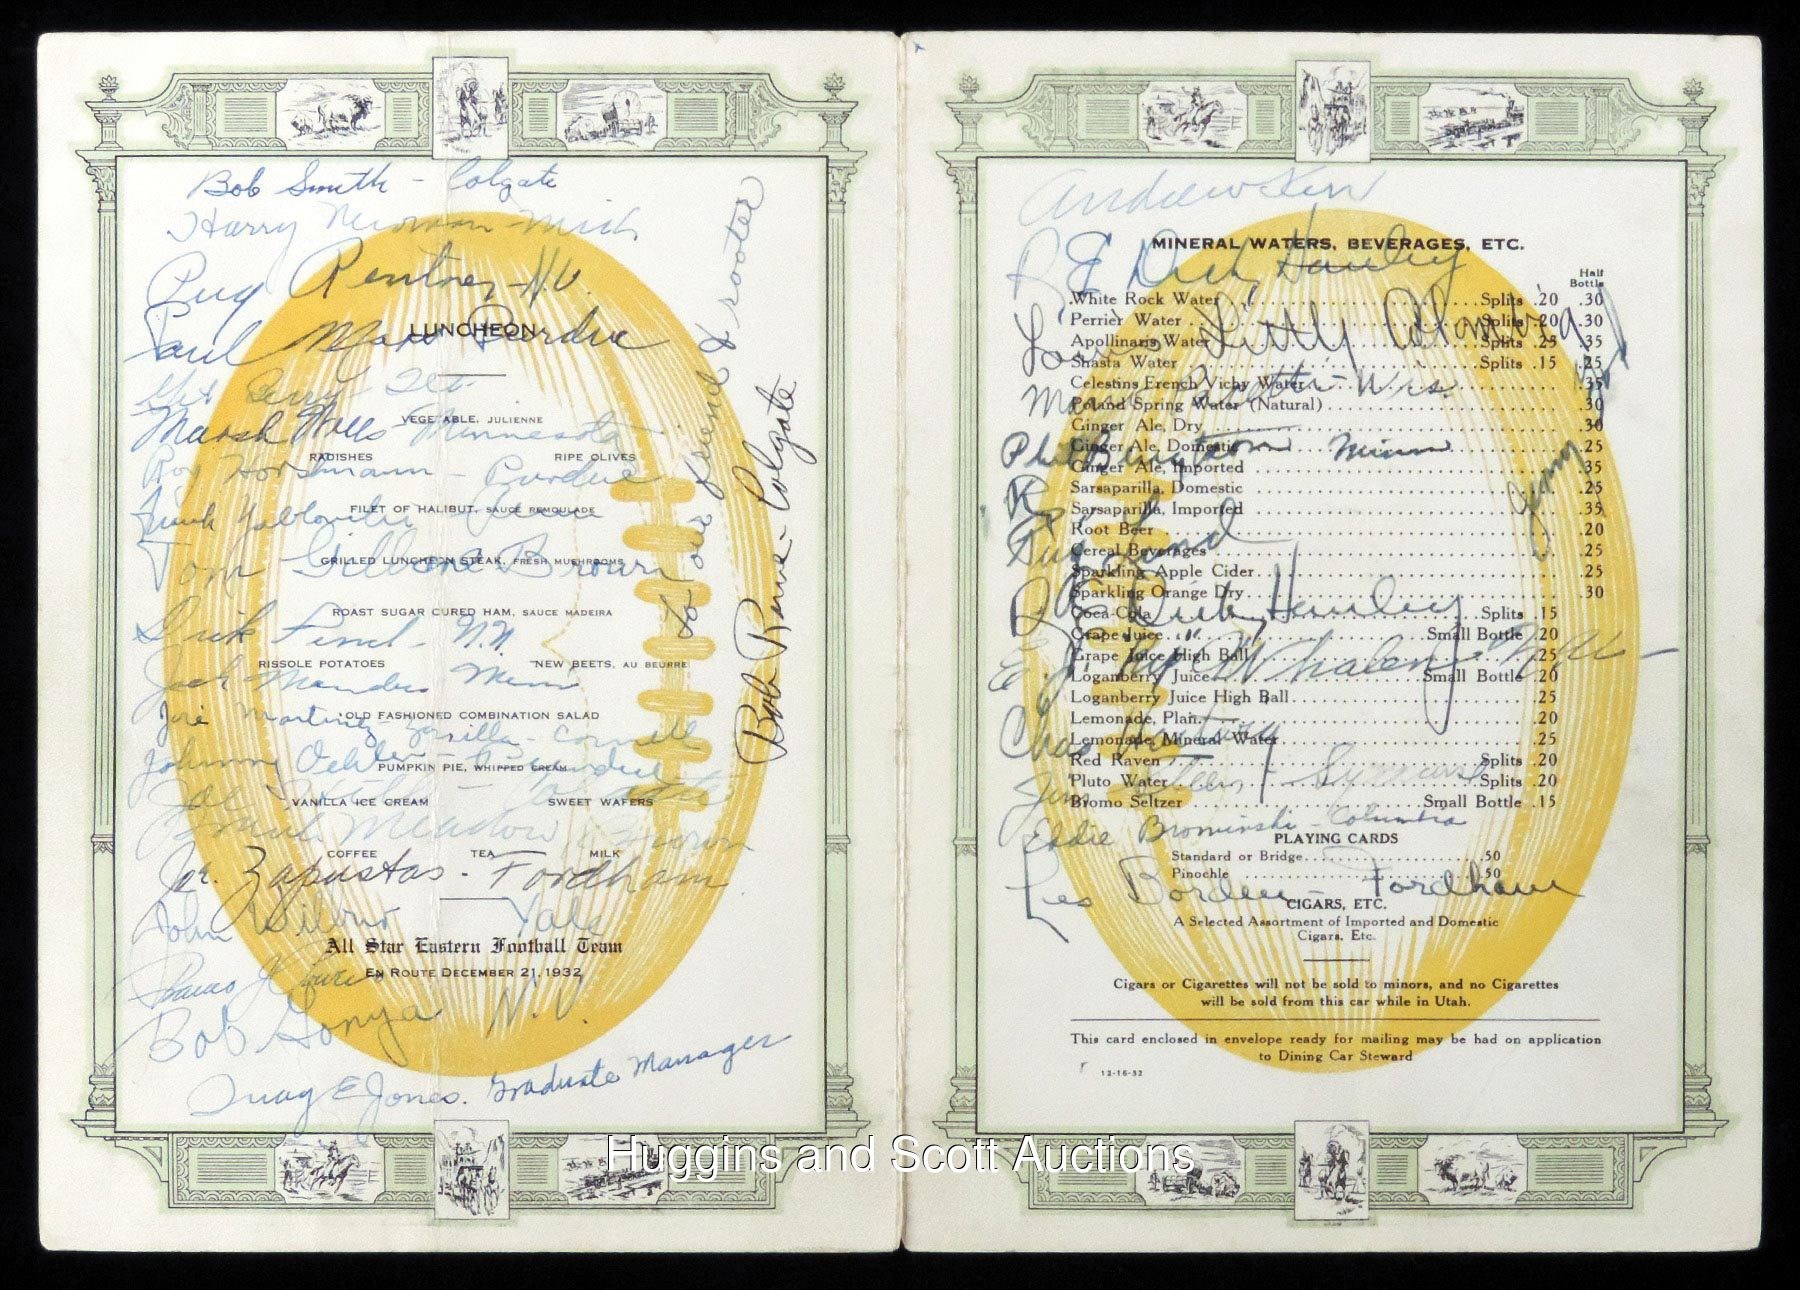 Bob Smith - Colgate
Harry Newman - Mich
Pug Rentner - N.U.
LUNCHEON
Paul Moss Purdue
Berry
VEGETABLE, JULIENNE
Marsh Wells Minnesota
RADISHES RIPE OLIVES
Roy Horstmann - Purdue
FILET OF HALIBUT, SAUCE REMOULADE
Frank
GRILLED LUNCHEON STEAK, FRESH MUSHROOMS
Tom Gilbane Brown
ROAST SUGAR CURED HAM, SAUCE MADEIRA
Dick Fencl - N.U.
RISSOLE POTATOES NEW BEETS, AU BEURRE
Jack Manders Minn
OLD FASHIONED COMBINATION SALAD
José Martinez-Zorilla - Cornell
PUMPKIN PIE, WHIPPED CREAM
Johnny Oehler - Purdue
VANILLA ICE CREAM SWEET WAFERS
Joe
Meadow Brown
COFFEE TEA MILK
Joe. Zapustas - Fordham
John Wilbur Yale
All Star Eastern Football Team
EN ROUTE DECEMBER 21, 1932
Bob Gonya N.U.
E Jones. Graduate Manager
To our friend & rooter
Bob Rowe - Colgate
Andrew Kerr
MINERAL WATERS, BEVERAGES, ETC.
R E Dick Hanley
Half
Bottle
White Rock Water Splits .20 .30
Perrier Water Splits .20 .30
Apollinaris Water Splits .25 .35
Shasta Water Splits .15 .25
Celestins French Vichy Water .35
Poland Spring Water (Natural) .30
Ginger Ale, Dry .30
Ginger Ale, Domestic .25
Ginger Ale, Imported .35
Sarsaparilla, Domestic .25
Sarsaparilla, Imported .35
Root Beer .20
Cereal Beverages .25
Sparkling Apple Cider .25
Sparkling Orange Dry .30
Coca-Cola Splits .15
Grape Juice Small Bottle .20
Grape Juice High Ball .25
Loganberry Juice Small Bottle .20
Loganberry Juice High Ball .25
Lemonade, Plain .20
Lemonade, Mineral Water .25
Red Raven Splits .20
Pluto Water Splits .25
Bromo Seltzer Small Bottle .15
Louis Kittly Alambra
Wis.
Phil Bengtson Minn
R E Dick Hanley
Whalen - N.U.
Jim Steen - Syracuse
Eddie Brominski - Columbia
PLAYING CARDS
Standard or Bridge .50
Pinochle .50
Les Borden - Fordham
CIGARS, ETC.
A Selected Assortment of Imported and Domestic
Cigars, Etc.
Cigars or Cigarettes will not be sold to minors, and no Cigarettes
will be sold from this car while in Utah.
This card enclosed in envelope ready for mailing may be had on application
to Dining Car Steward
12-16-32
Huggins and Scott Auctions